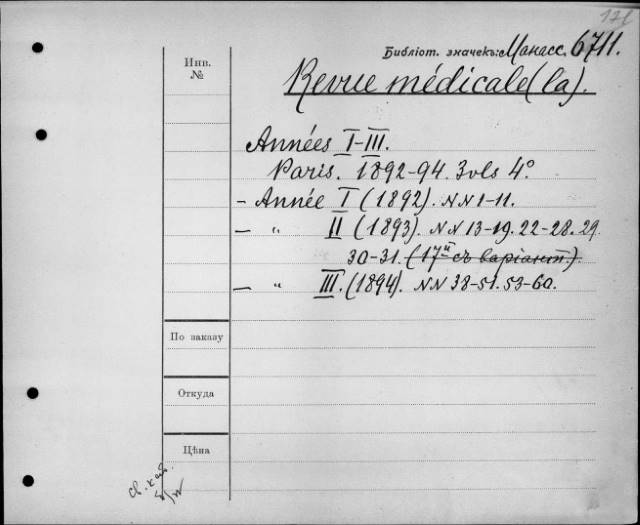 126
Библіот. значекъ: Манасс. 6711.
Инв.
№
Revue médicale (la).
Années I-III.
Paris. 1892-94. 3 vls 4°
- Année I (1892). NN 1-11.
— " II (1893). NN 13-19. 22-28. 29.
30-31. (17й съ варіант.).
— " III. (1894). NN 38-51. 53-60.
По заказу
Откуда
Цѣна